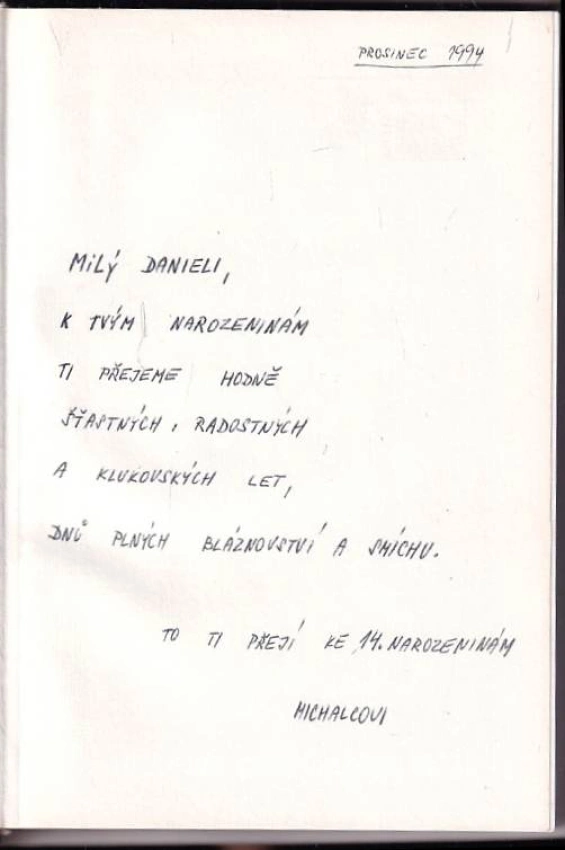 PROSINEC 1994
MILÝ DANIELI,
K TVÝM NAROZENINÁM
TI PŘEJEME HODNĚ
ŠŤASTNÝCH, RADOSTNÝCH
A KLUKOVSKÝCH LET,
DNŮ PLNÝCH BLÁZNOVSTVÍ A SMÍCHU.
TO TI PŘEJÍ KE 14. NAROZENINÁM
MICHALCOVI